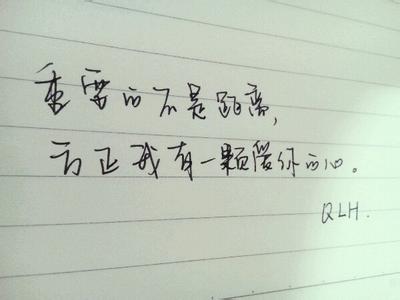 重要的不是距离，
方正我有一颗陪你的心。
QLH.